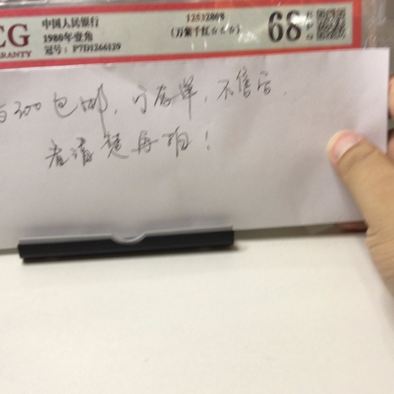 CG
RANTY
中国人民银行
1980年壹角
冠号：P7D1266129
12532808
(万紫千红☆☆☆)
68
300包邮，可存单，不售后，
看清楚再拍！